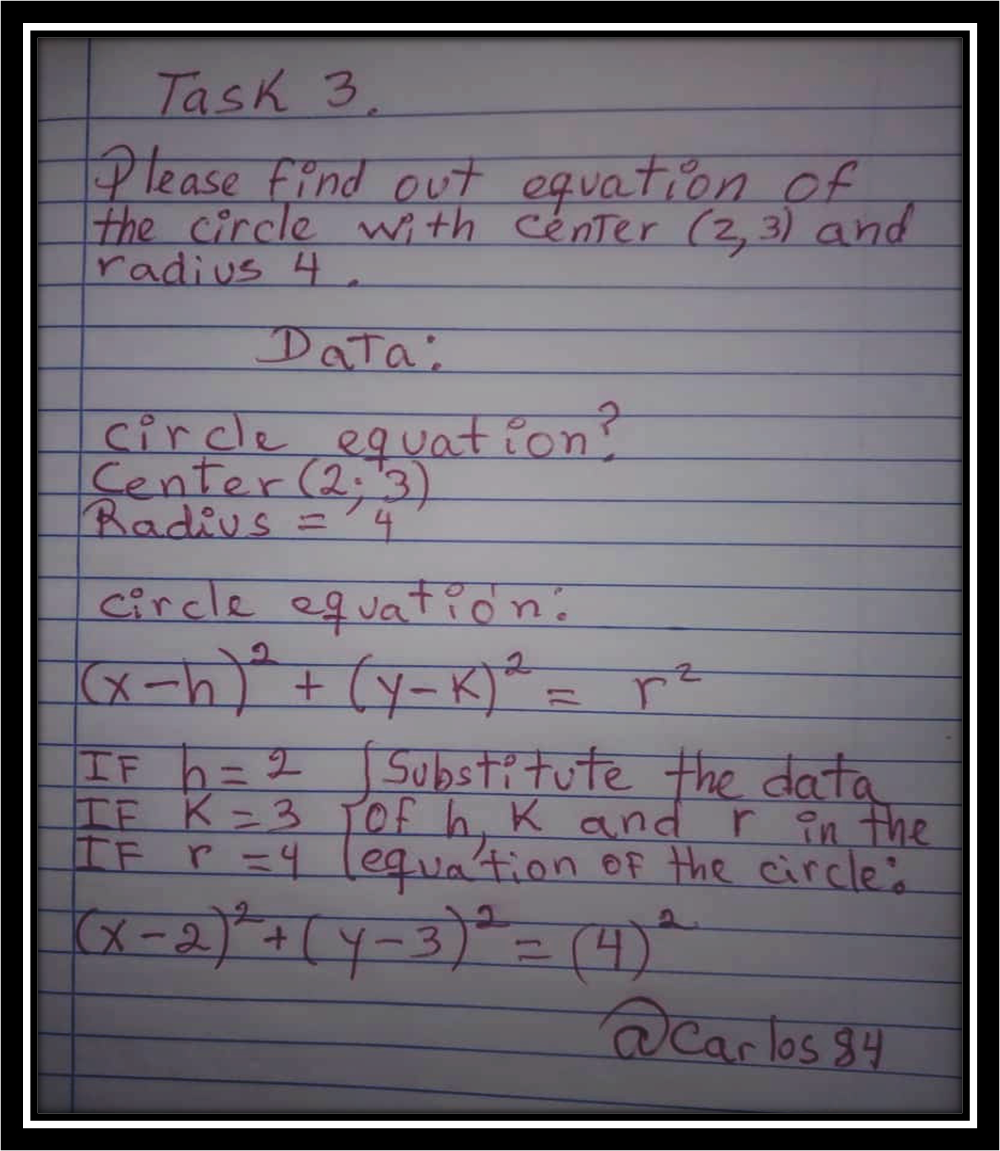 Task 3.
Please find out equation of
the circle with center (2,3) and
radius 4.
Data:
circle equation?
Center (2; 3)
Radius = 4
circle equation:
(x-h)² + (y-K)² = r²
IF h = 2 { Substitute the data
IF K = 3 { of h, K and r in the
IF r = 4 { equation of the circle:
(x-2)² + (y-3)² = (4)²
@Carlos84